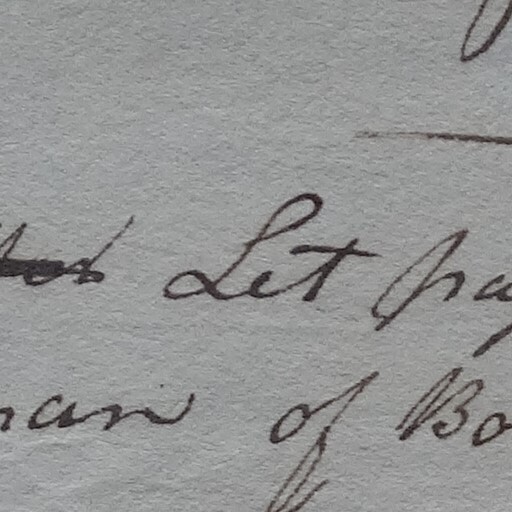 Let pay
man of Bo